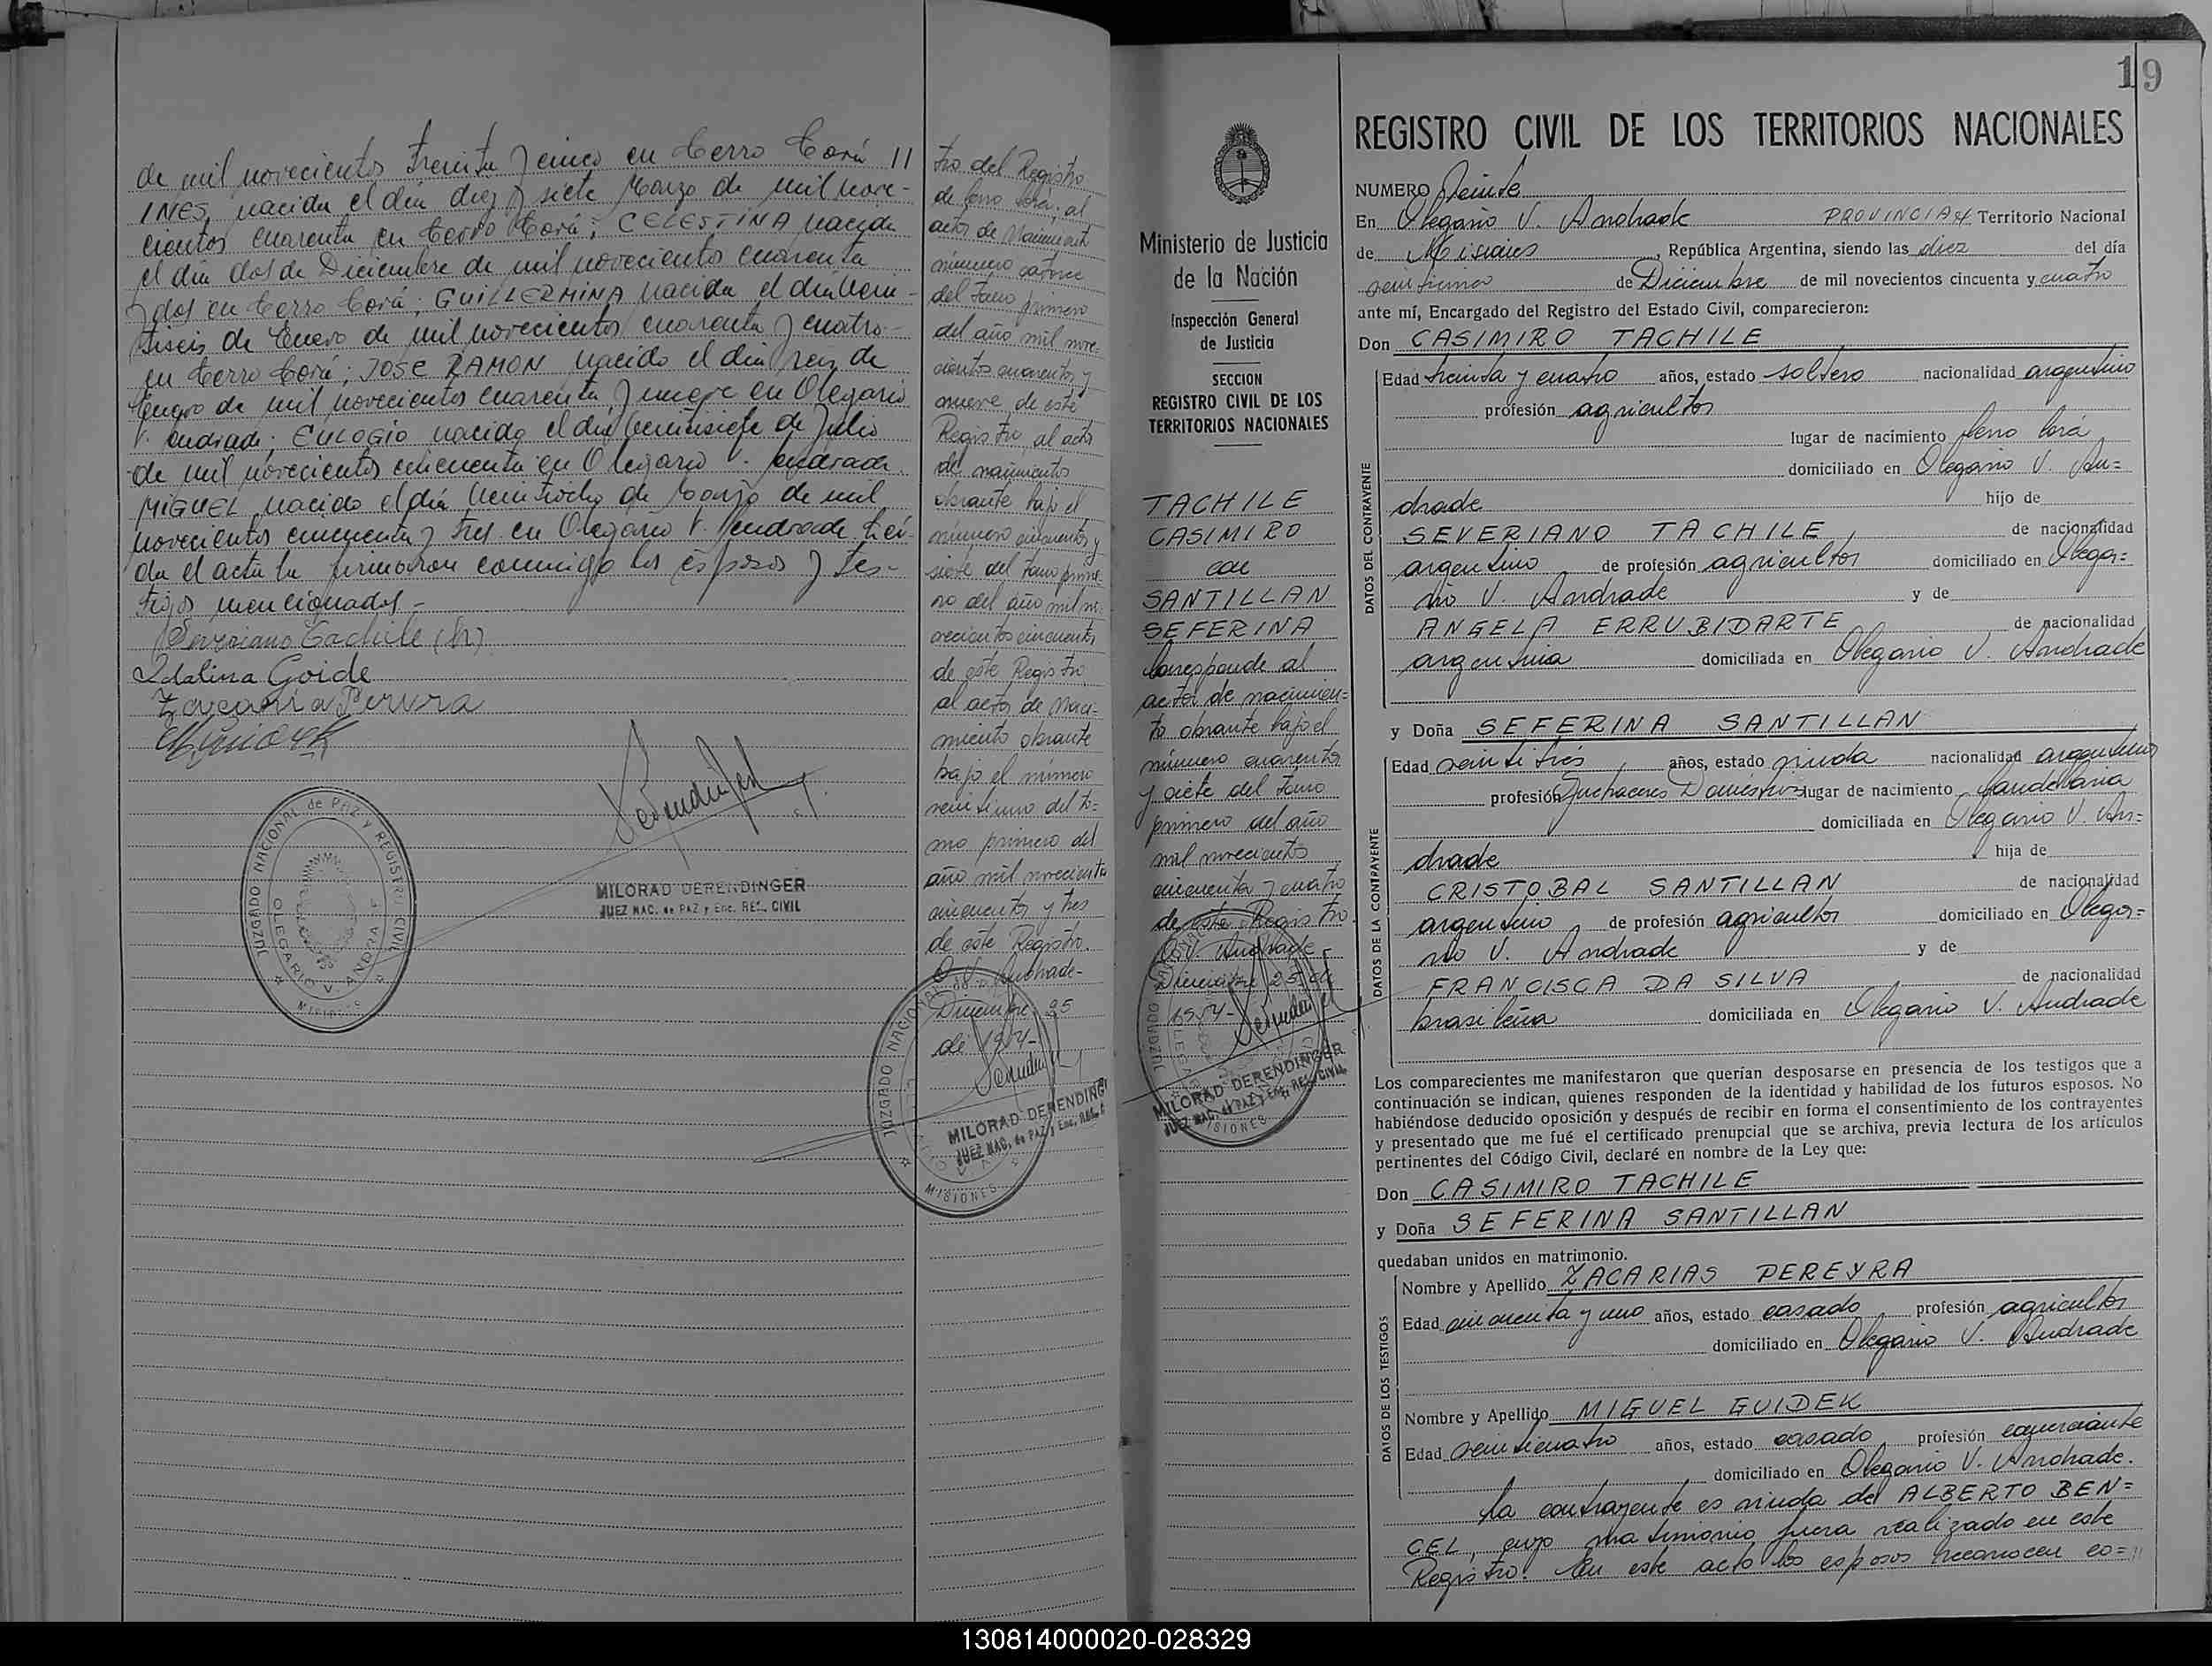 de mil novecientos treinta y cinco en Cerro Corá //
INES, nacida el día diez y siete Marzo de mil nove-
cientos cuarenta en Cerro Corá; CELESTINA nacida
el día dos de Diciembre de mil novecientos cuarenta
y dos en Cerro Corá; GUILLERMINA nacida el día vein-
tiseis de Enero de mil novecientos cuarenta y cuatro
en Cerro Corá; JOSE RAMON nacido el día seis de
Enero de mil novecientos cuarenta y nueve en Olegario
V. Andrade; EULOGIO nacido el día veintisiete de Julio
de mil novecientos cincuenta en Olegario V. Andrade.
MIGUEL nacido el día veintiocho de Marzo de mil
novecientos cincuenta y tres en Olegario V. Andrade Leí-
da el acta la firmaron conmigo los esposos y tes-
tigos mencionados.-
Severiano Tachile (h)
Idalina Goide
Zacaria Pereyra
JUZGADO NACIONAL de PAZ Y REGISTRO CIVIL
OLEGARIO V. ANDRADE
MISIONES
MILORAD DERENDINGER
JUEZ NAC. de PAZ y Enc. REG. CIVIL
tro del Registro
de Cerro Corá; al
acta de Nacimiento
número catorce
del tomo primero
del año mil nove-
cientos cuarenta y
nueve de este
Registro, al acta
de nacimiento
obrante bajo el
número cincuenta y
siete del tomo prime-
ro del año mil no-
vecientos cincuenta
de este Registro
al acta de Naci-
miento obrante
bajo el número
veintiuno del to=
mo primero del
año mil novecientos
cincuenta y tres
de este Registro.
O. V. Andrade-
Diciembre 25
de 1954-
JUZGADO NACIONAL
MILORAD DERENDING
JUEZ NAC. de PAZ y Enc. REG. C
MISIONES
Ministerio de Justicia
de la Nación
Inspección General
de Justicia
SECCION
REGISTRO CIVIL DE LOS
TERRITORIOS NACIONALES
TACHILE
CASIMIRO
con
SANTILLAN
SEFERINA
Corresponde al
acta de nacimien=
to obrante bajo el
número cuarenta
y siete del tomo
primero del año
mil novecientos
cincuenta y cuatro
de este Registro.
O.V. Andrade
Diciembre 25 de
1954-
JUZGADO
MILORAD DERENDINGER
JUEZ NAC. de PAZ y Enc. REG. CIVIL
MISIONES
19
REGISTRO CIVIL DE LOS TERRITORIOS NACIONALES
NUMERO Veinte
En Olegario V. Andrade PROVINCIA Territorio Nacional
de Misiones, República Argentina, siendo las diez del día
veinticinco de Diciembre de mil novecientos cincuenta y cuatro
ante mí, Encargado del Registro del Estado Civil, comparecieron:
Don CASIMIRO TACHILE
DATOS DEL CONTRAYENTE
Edad treinta y cuatro años, estado soltero nacionalidad argentino
profesión agricultor
lugar de nacimiento Cerro Corá
domiciliado en Olegario V. An=
drade hijo de
SEVERIANO TACHILE de nacionalidad
argentino de profesión agricultor domiciliado en Olega=
rio V. Andrade y de
ANGELA ERRUBIDARTE de nacionalidad
argentina domiciliada en Olegario V. Andrade
y Doña SEFERINA SANTILLAN
DATOS DE LA CONTRAYENTE
Edad veintitrés años, estado viuda nacionalidad argentina
profesión Quehaceres Domésticos lugar de nacimiento Candelaria
domiciliada en Olegario V. An=
drade hija de
CRISTOBAL SANTILLAN de nacionalidad
argentino de profesión agricultor domiciliado en Olega=
rio V. Andrade y de
FRANCISCA DA SILVA de nacionalidad
brasileña domiciliada en Olegario V. Andrade
Los comparecientes me manifestaron que querían desposarse en presencia de los testigos que a
continuación se indican, quienes responden de la identidad y habilidad de los futuros esposos. No
habiéndose deducido oposición y después de recibir en forma el consentimiento de los contrayentes
y presentado que me fué el certificado prenupcial que se archiva, previa lectura de los artículos
pertinentes del Código Civil, declaré en nombre de la Ley que:
Don CASIMIRO TACHILE
y Doña SEFERINA SANTILLAN
quedaban unidos en matrimonio.
DATOS DE LOS TESTIGOS
Nombre y Apellido ZACARIAS PEREYRA
Edad cincuenta y uno años, estado casado profesión agricultor
domiciliado en Olegario V. Andrade
Nombre y Apellido MIGUEL GUIDEK
Edad veinticuatro años, estado casado profesión comerciante
domiciliado en Olegario V. Andrade.
La contrayente es viuda de ALBERTO BEN=
CEL, cuyo matrimonio fuera realizado en este
Registro. En este acto los esposos reconocen co=//
130814000020-028329